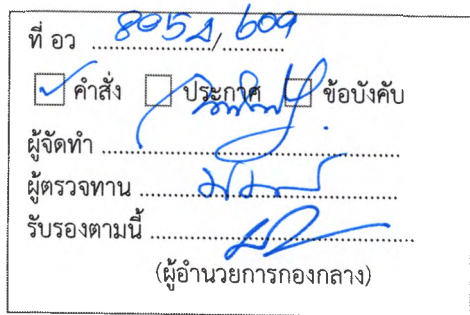 ที่ อว 8052/609
☑ คำสั่ง ☐ ประกาศ ☐ ข้อบังคับ
ผู้จัดทำ
ผู้ตรวจทาน
รับรองตามนี้
(ผู้อำนวยการกองกลาง)